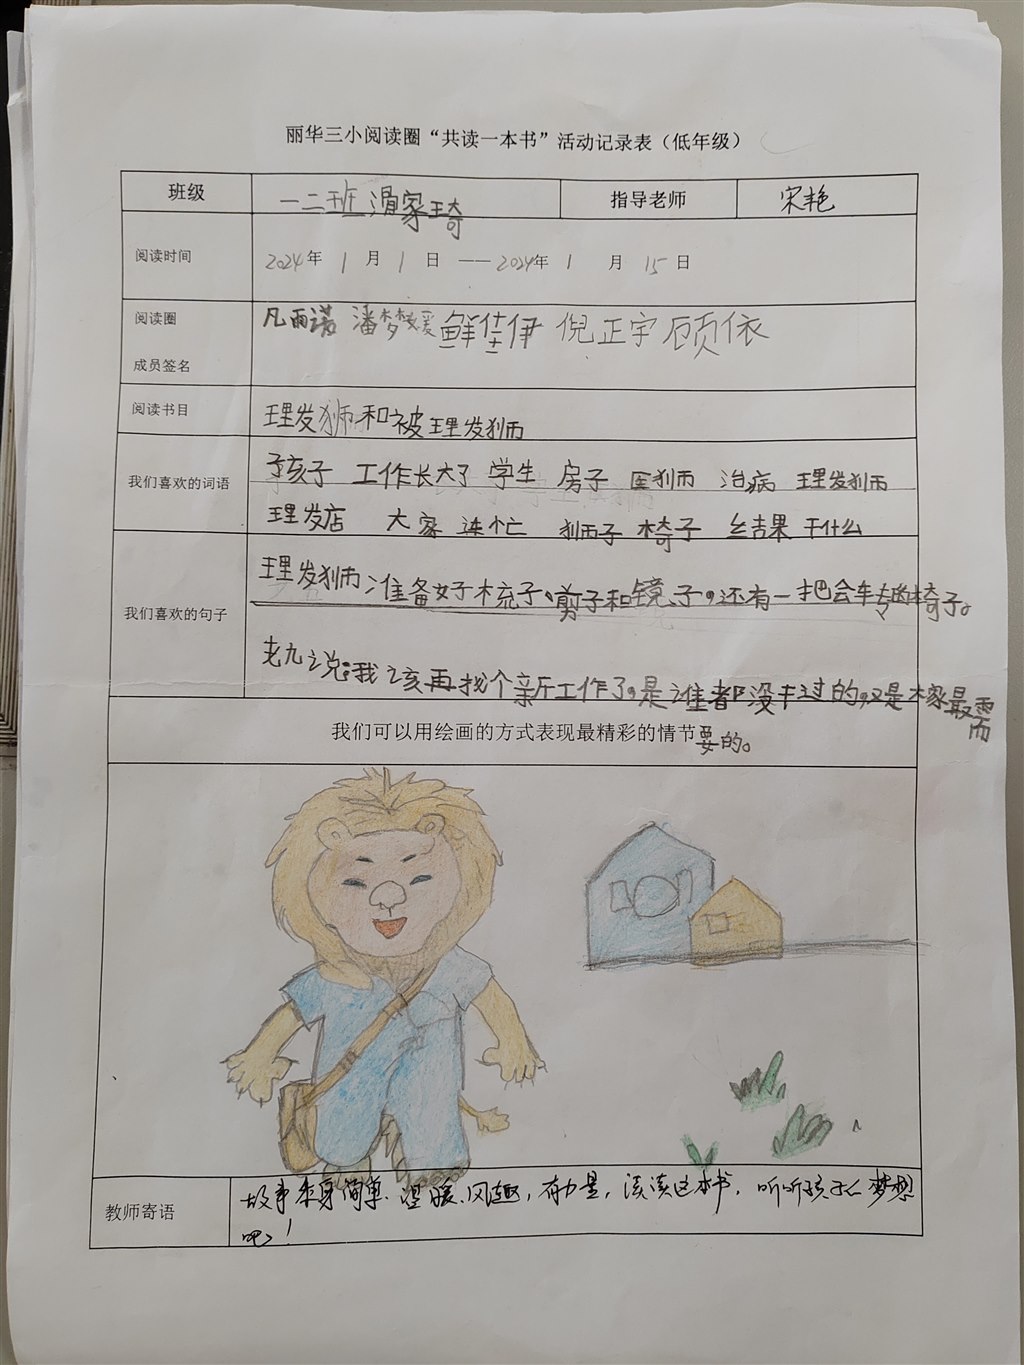 丽华三小阅读圈“共读一本书”活动记录表（低年级）
班级 一二班 滑家琦 指导老师 宋艳
阅读时间 2024年 1 月 1 日 —— 2024年 1 月 15 日
阅读圈 凡雨诺 潘梦媛 鲜佳伊 倪正宇 顾依
成员签名
阅读书目 理发狮和被理发狮
我们喜欢的词语 孩子 工作长大了 学生 房子 医狮 治病 理发狮
理发店 大家 连忙 狮子 椅子 结果 干什么
我们喜欢的句子 理发狮准备好梳子、剪子和镜子，还有一把会转的椅子。
说：我该再找个新工作了，是谁都没干过的，又是大家最需
要的。
我们可以用绘画的方式表现最精彩的情节
教师寄语 故事本身简单、温暖、风趣，有力量，读读这本书，听听孩子们梦想
吧！